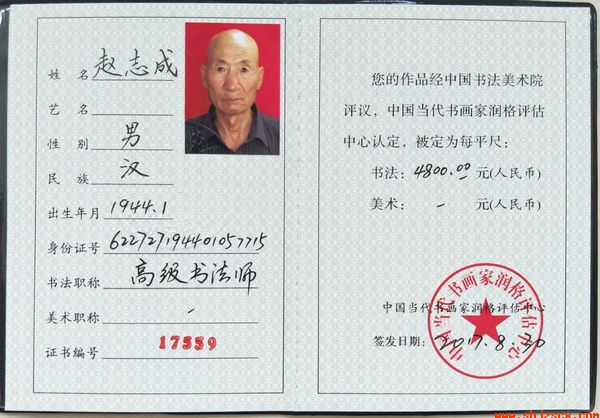 姓名 赵志成
艺名
性别 男
民族 汉
出生年月 1944.1
身份证号 622727194401057715
书法职称 高级书法师
美术职称 -
证书编号 17559
您的作品经中国书法美术院
评议，中国当代书画家润格评估
中心认定，被定为每平尺：
书法：4800.00 元(人民币)
美术： - 元(人民币)
中国当代书画家润格评估中心
签发日期：2017.8.30
中国当代书画家润格评估中心